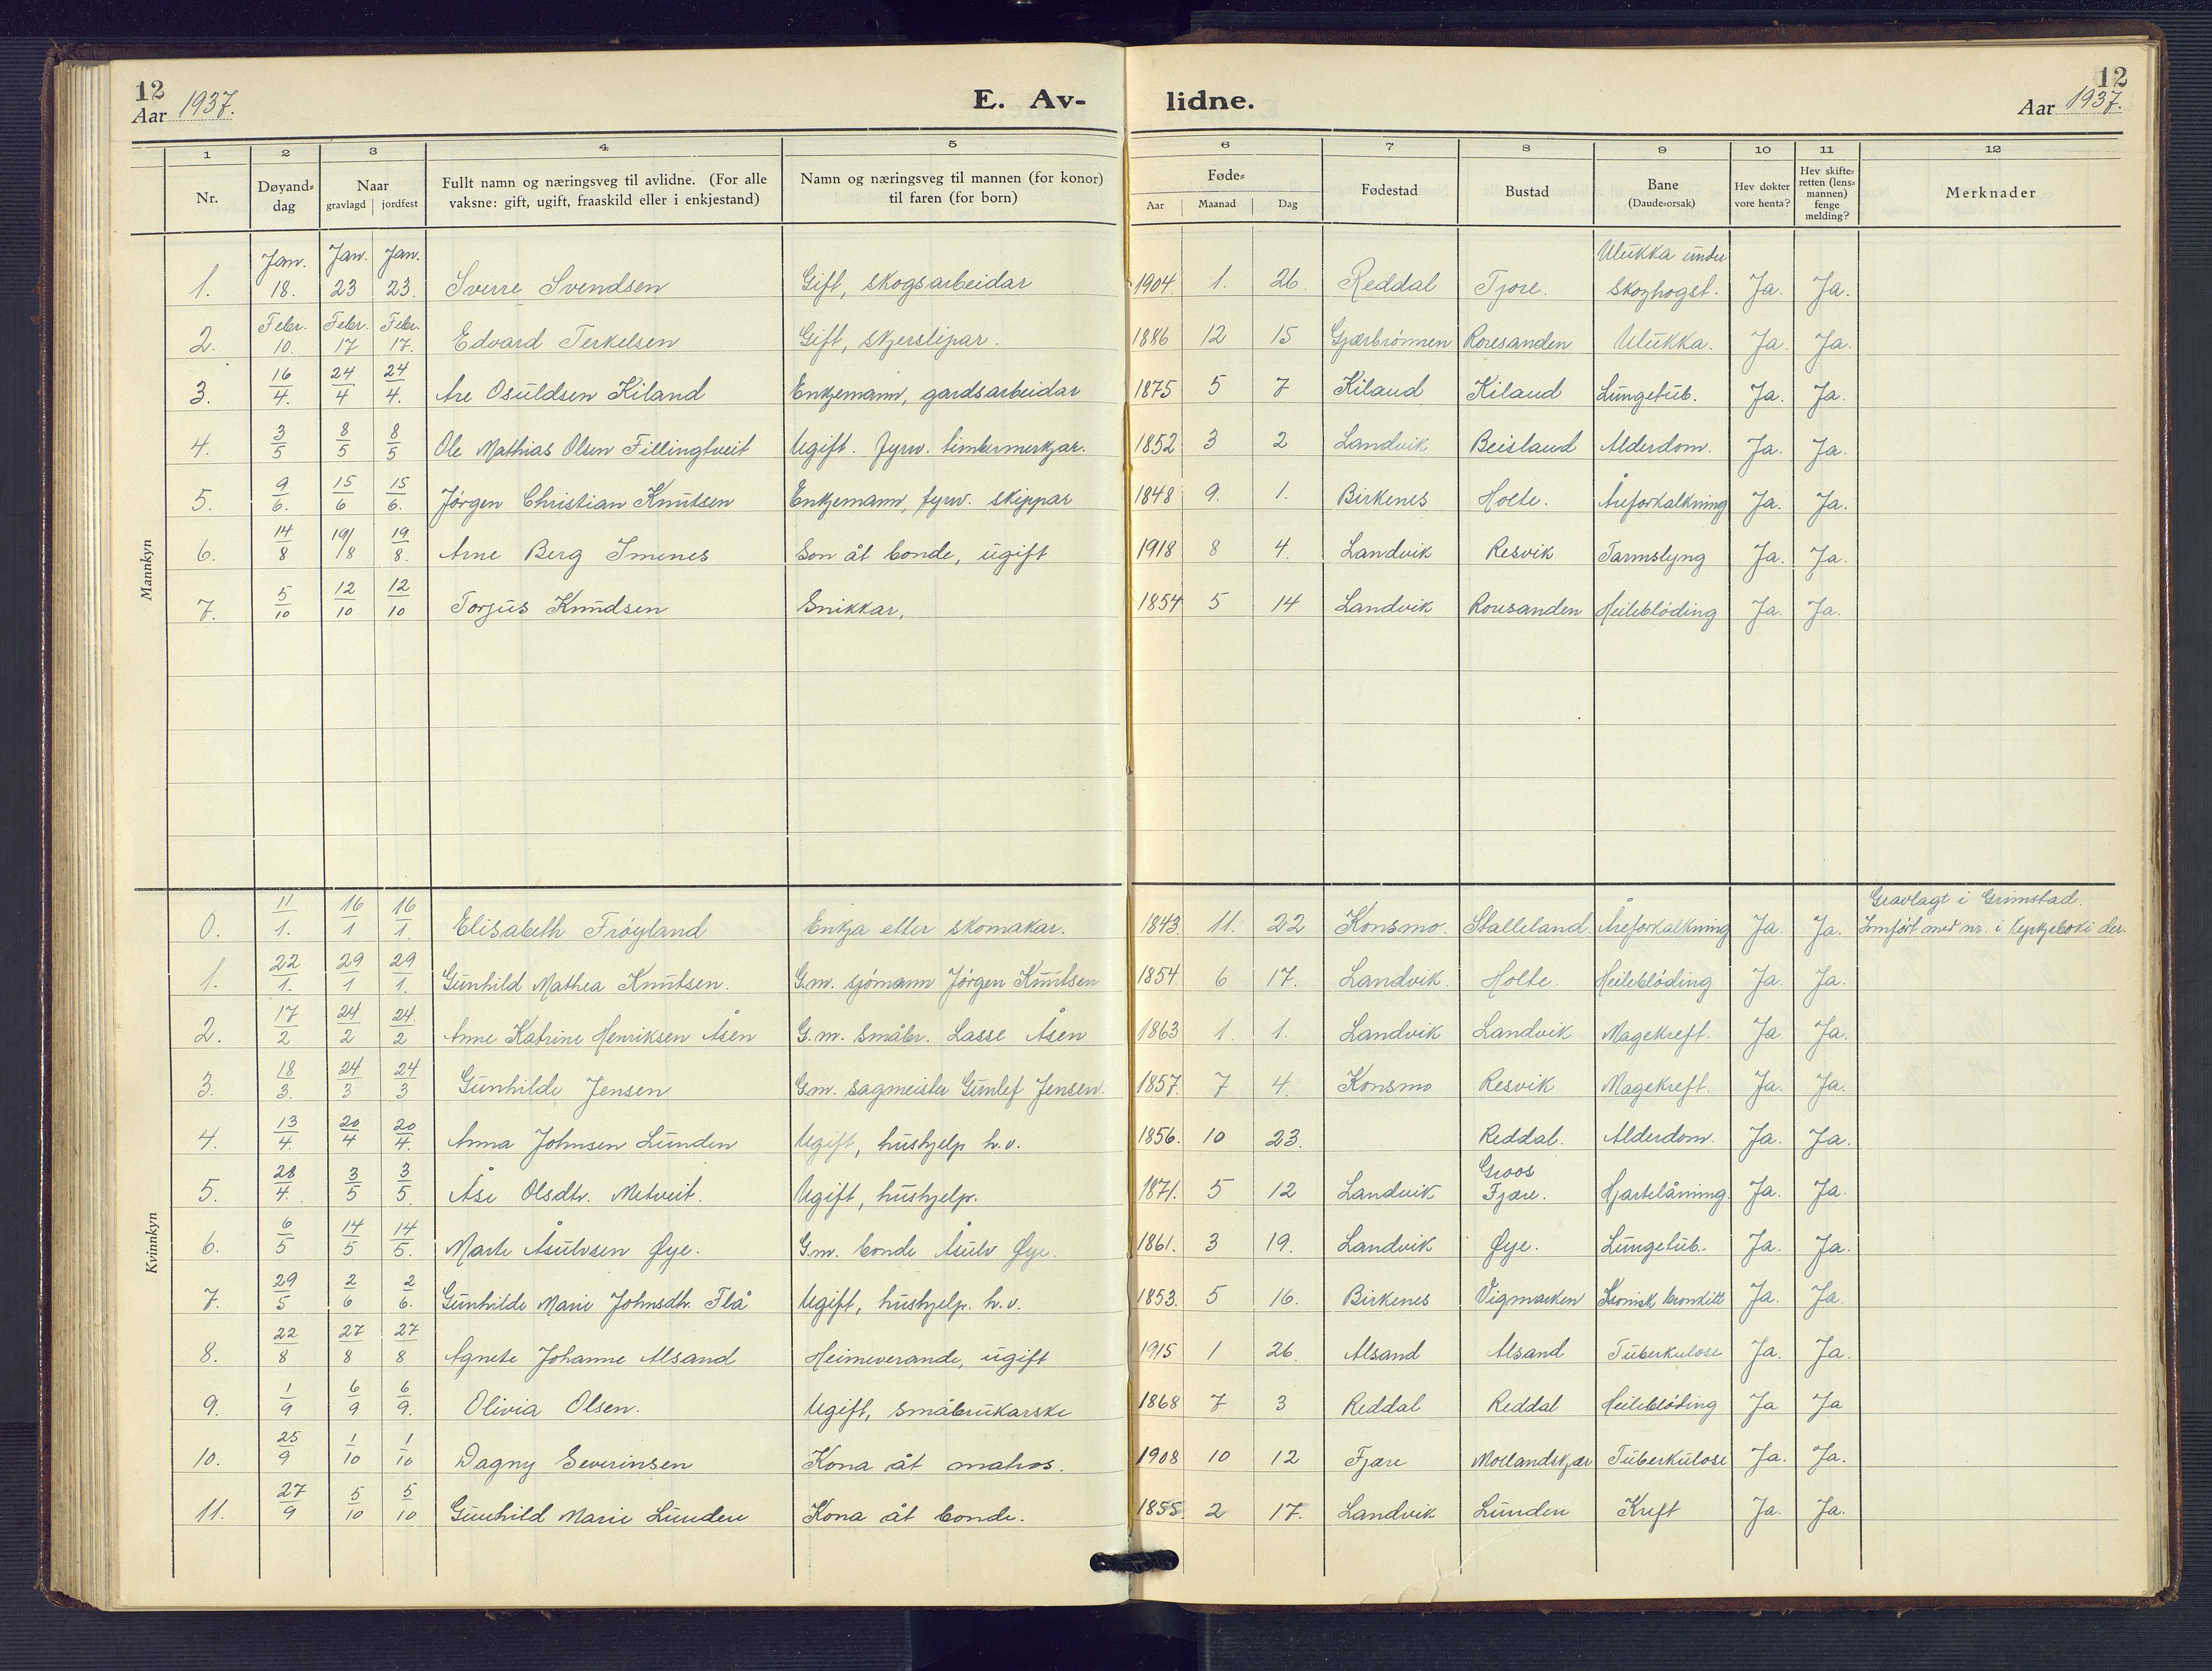 12
Aar 1937.
E. Av-
lidne.
12
Aar 1937.
1 2 3 4 5 6 7 8 9 10 11 12
Nr.
Døyand=
dag
Naar
gravlagd jordfest
Fullt namn og næringsveg til avlidne. (For alle
vaksne: gift, ugift, fraaskild eller i enkjestand)
Namn og næringsveg til mannen (for konor)
til faren (for born)
Føde=
Aar Maanad Dag
Fødestad
Bustad
Bane
(Daude=orsak)
Hev dokter
vore henta?
Hev skifte=
retten (lens=
mannen)
fenge
melding?
Merknader
Mannkyn
Jan. Jan. Jan. Ulukka under
1. 18. 23 23. Sverre Svendsen Gift, skogsarbeidar 1904. 1. 26. Reddal Tjore. skoghogst. Ja. Ja.
Febr. Febr. Febr.
2. 10. 17 17. Edvard Terkelsen Gift, skjerslipar. 1886 12 15 Gjærbrønnen Roresanden Ulukka. Ja. Ja.
3. 16/4. 24/4 24/4. Are Osuldsen Kiland Enkjemann, gardsarbeidar 1875 5 7 Kiland Kiland Lungetub. Ja. Ja.
4. 3/5 8/5 8/5 Ole Mathias Olsen Fillingtveit Ugift. fyrv. timbermerkjar. 1852 3 2 Landvik Beisland Alderdom. Ja. Ja.
5. 9/6. 15/6 15/6. Jörgen Christian Knutsen Enkjemann, fyrv. skippar 1848 9. 1. Birkenes Holte. Åreforkalkning Ja. Ja.
6. 14/8 19/8 19/8. Arne Berg Imenes Son åt bonde, ugift 1918 8 4. Landvik Resvik Tarmslyng Ja. Ja.
7. 5/10 12/10 12/10 Torjus Knudsen Snikkar, 1854 5 14 Landvik Roresanden Heileblöding Ja. Ja.
Kvinnkyn
Gravlagt i Grimstad.
0. 11/1. 16/1 16/1. Elisabeth Fröyland Enkja etter skomakar. 1843. 11. 22 Konsmo. Stalleland. Åreforkalkning Ja Ja. Innfört med nr. i kyrkjeboki der.
1. 22/1. 29/1 29/1. Gunhild Mathea Knutsen. G.m. sjömann Jörgen Knutsen 1854. 6 17. Landvik. Holte. Heileblöding Ja. Ja.
2. 17/2 24/2 24./2 Anne Katrine Henriksen Åsen G.m. småbr. Lasse Åsen 1863 1. 1. Landvik Landvik Magekreft. Ja. Ja.
3. 18/3. 24/3 24/3 Gunhilde Jensen G.m. sagmeister Gunlef Jensen. 1857. 7 4. Konsmo Resvik Magekreft. Ja. Ja.
4. 13/4. 20/4 20/4. Anna Johnsen Lunden Ugift, hushjelp h.v. 1856. 10 23. Reddal. Alderdom. Ja. Ja.
Groos
5. 28/4. 3/5 3/5. Åse Olsdtr. Metveit. Ugift, hushjelp. 1871. 5 12 Landvik Fjære. Hjartelåming. Ja. Ja.
6. 6/5 14/5 14/5. Marte Åsulvsen Øye. G.m. bonde Åsulv Øye. 1861. 3 19. Landvik Øye. Lungetub. Ja. Ja.
7. 29/5 2/6 2/6. Gunhilde Marie Johnsdtr. Flå Ugift, hushjelp. h.v. 1853. 5 16. Birkenes Vigmarken Kronisk bronkitt Ja. Ja.
8. 22/8 27/8 27/8 Agnete Johanne Alsand Heimeverande, ugift 1915 1 26. Alsand Alsand Tuberkulose Ja. Ja.
9. 1/9 6/9 6/9. Olivia Olsen. Ugift, småbrukarske 1868 7 3 Reddal Reddal Heileblöding Ja Ja
10. 25/9 1/10 1/10 Dagny Severinsen Kona åt matros. 1908 10 12 Fjære Mollandskjær Tuberkulose Ja. Ja.
11. 27/9 5/10 5/10 Gunhild Marie Lunden Kona åt bonde. 1855. 2 17. Landvik Lunden Kreft Ja. Ja.